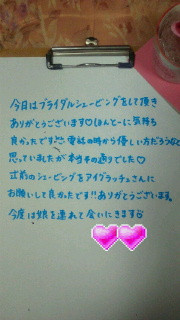 今日はブライダルシェービングをして頂き
ありがとうございます♡ほんとーに気持ち
良かったです!! 電話の時から優しい方だろうなと
思っていましたが本当その通りでした♡
式前のシェービングをアイグラッチェさんに
お願いして良かったです!!ありがとうございます。
今度は娘を連れて会いにきます